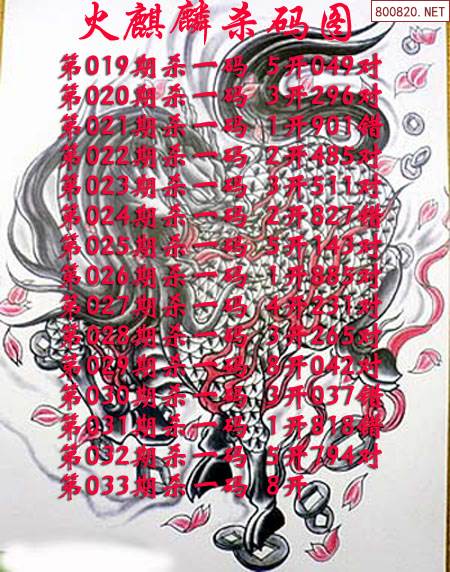 800820.NET
火麒麟杀码图
第019期杀一码 5开049对
第020期杀一码 3开296对
第021期杀一码 1开901错
第022期杀一码 2开485对
第023期杀一码 3开511对
第024期杀一码 2开827错
第025期杀一码 5开143对
第026期杀一码 1开885对
第027期杀一码 4开231对
第028期杀一码 3开265对
第029期杀一码 8开042对
第030期杀一码 3开037错
第031期杀一码 1开818错
第032期杀一码 5开794对
第033期杀一码 8开